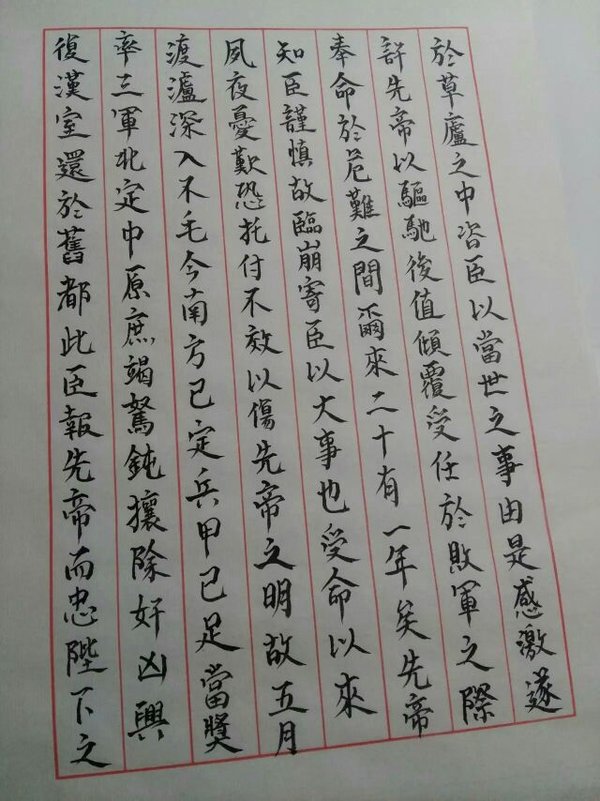 於草廬之中咨臣以當世之事由是感激遂
許先帝以驅馳後值傾覆受任於敗軍之際
奉命於危難之間爾來二十有一年矣先帝
知臣謹慎故臨崩寄臣以大事也受命以來
夙夜憂歎恐托付不效以傷先帝之明故五月
渡瀘深入不毛今南方已定兵甲已足當獎
率三軍北定中原庶竭駑鈍攘除奸凶興
復漢室還於舊都此臣報先帝而忠陛下之